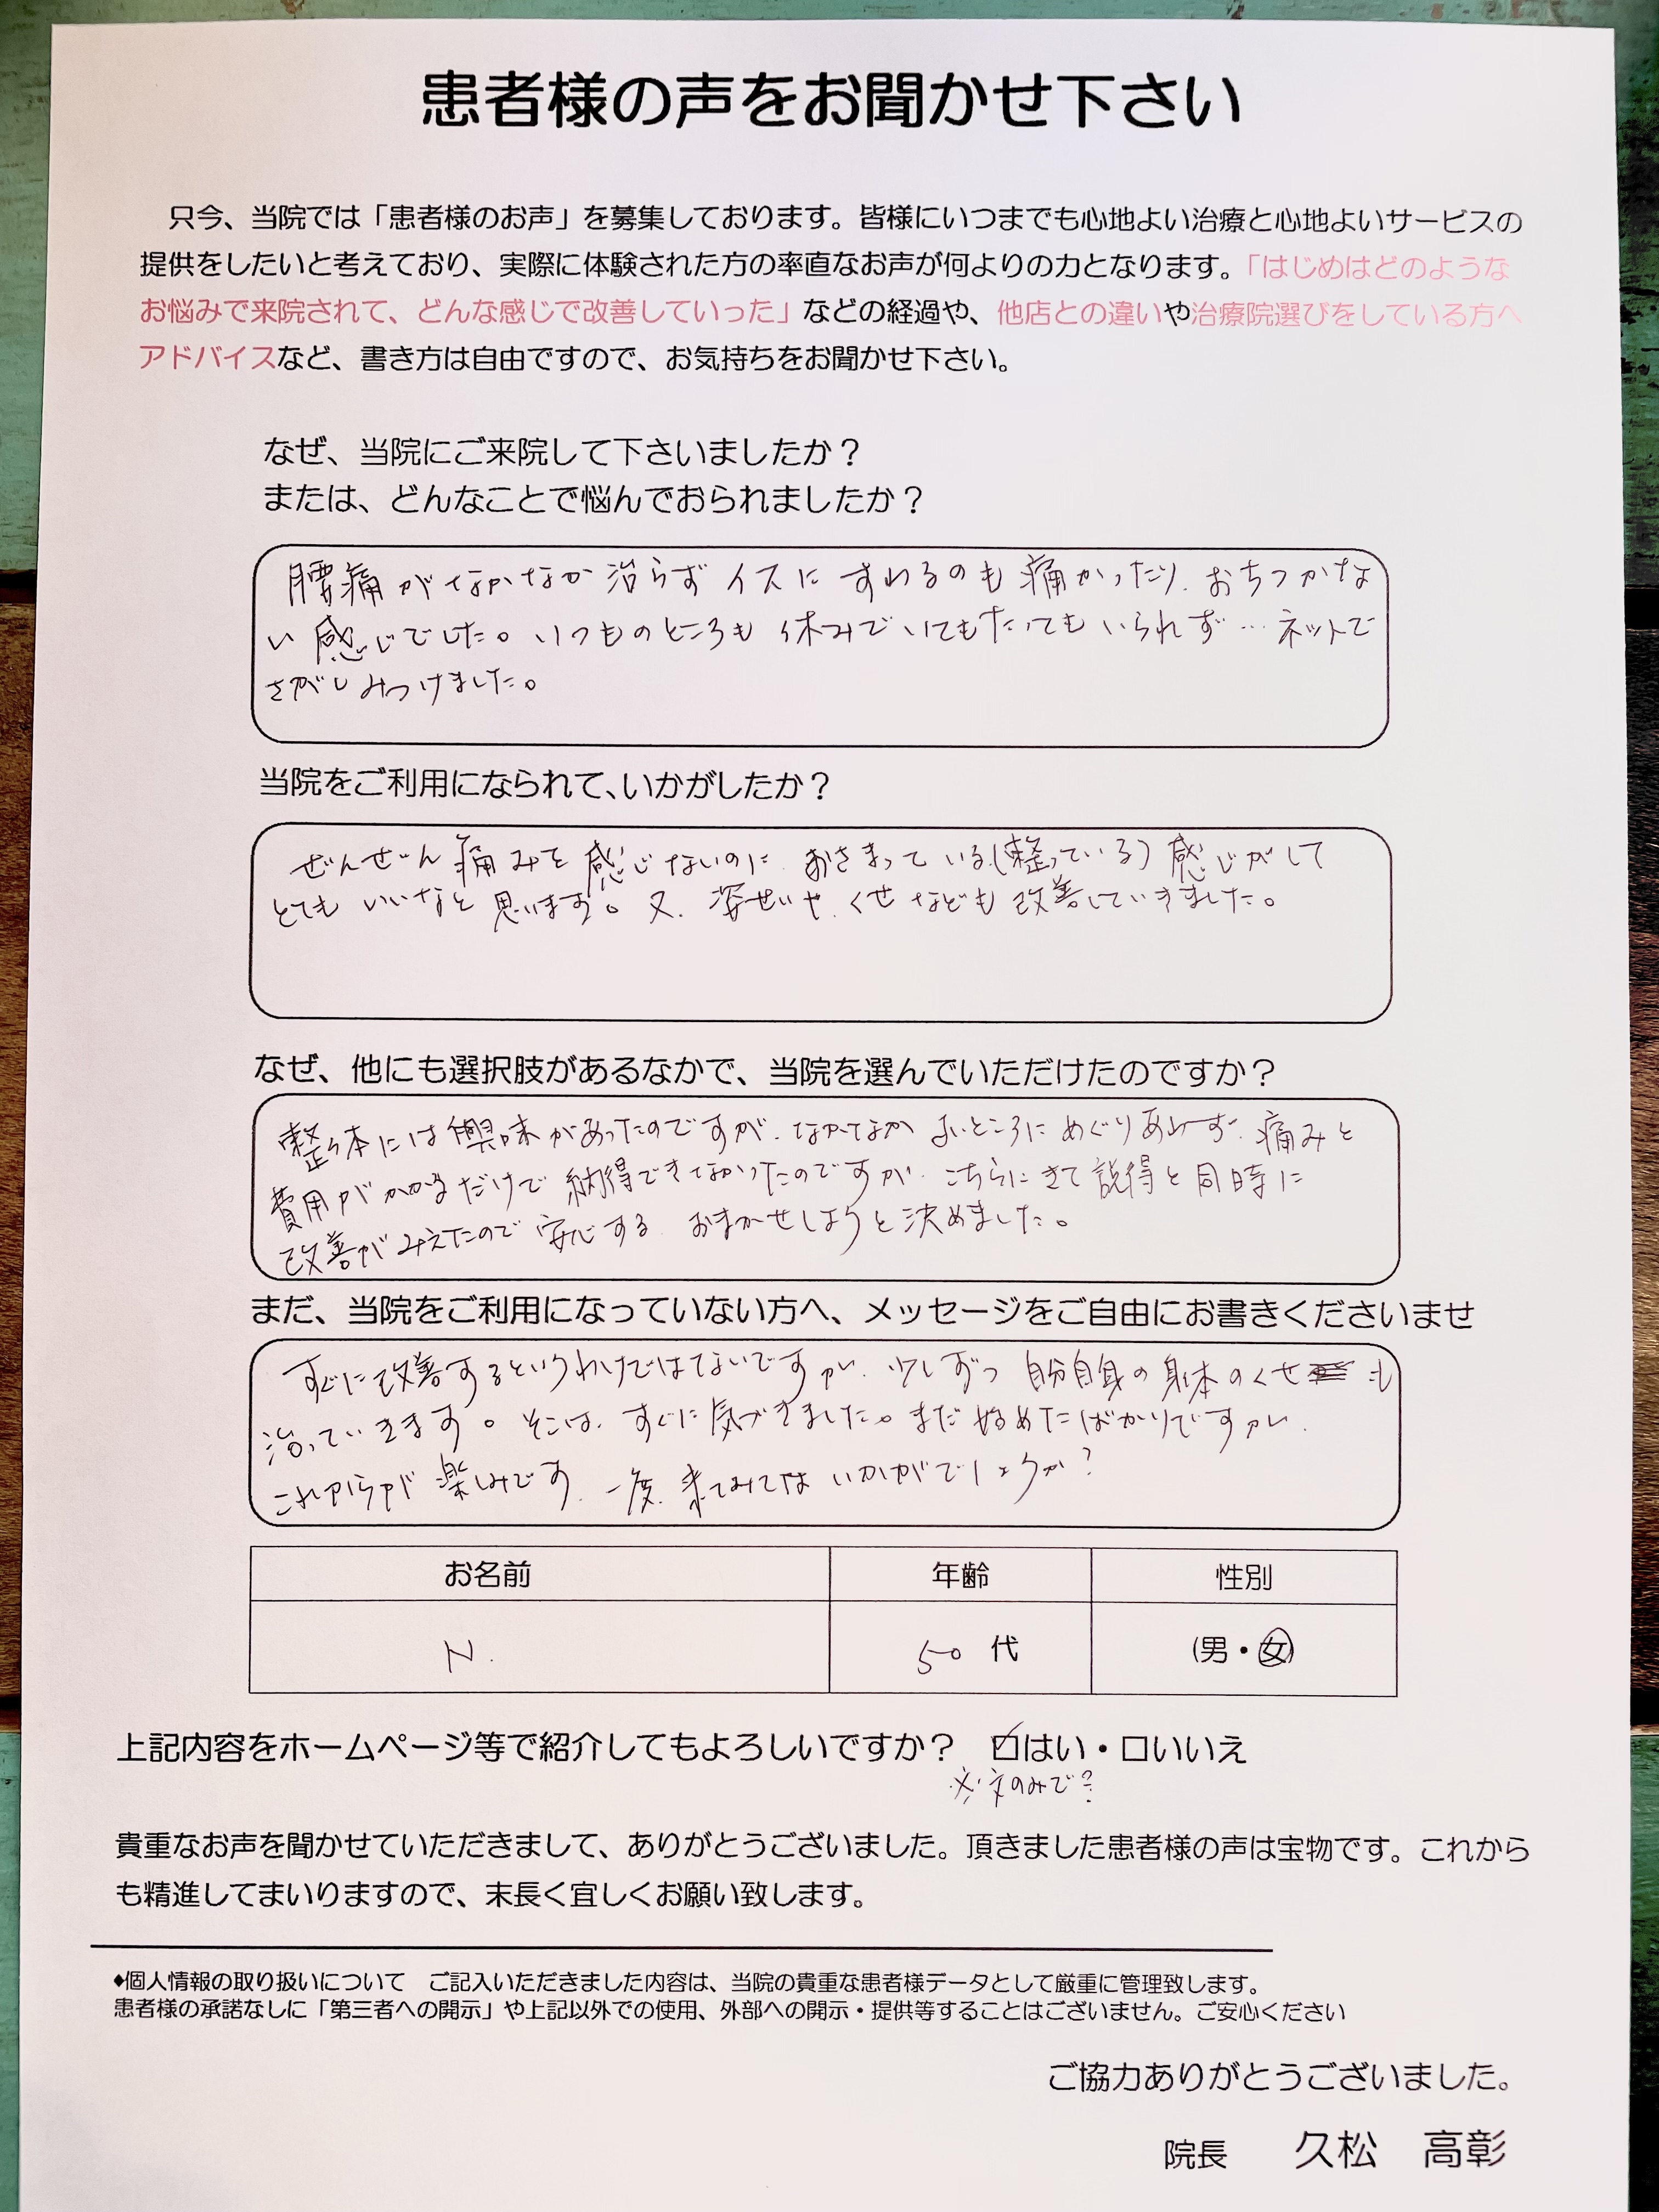 患者様の声をお聞かせ下さい
只今、当院では「患者様のお声」を募集しております。皆様にいつまでも心地よい治療と心地よいサービスの
提供をしたいと考えており、実際に体験された方の率直なお声が何よりの力となります。「はじめはどのような
お悩みで来院されて、どんな感じで改善していった」などの経過や、他店との違いや治療院選びをしている方へ
アドバイスなど、書き方は自由ですので、お気持ちをお聞かせ下さい。
なぜ、当院にご来院して下さいましたか？
または、どんなことで悩んでおられましたか？
腰痛がなかなか治らずイスにすわるのも痛かったり、おちつかな
い感じでした。いつものところも休みでいてもたってもいられず…ネットで
さがしみつけました。
当院をご利用になられて、いかがしたか？
ぜんぜん痛みを感じないのに、おさまっている（整っている）感じがして
とてもいいなと思います。又、姿せいや、くせなども改善していきました。
なぜ、他にも選択肢があるなかで、当院を選んでいただけたのですか？
整体には興味があったのですが、なかなかよいところにめぐりあわず、痛みと
費用がかかるだけで納得できなかったのですが、こちらにきて説得と同時に
改善がみえたので安心する、おまかせしようと決めました。
まだ、当院をご利用になっていない方へ、メッセージをご自由にお書きくださいませ
すぐに改善するというわけではないですが、少しずつ自分自身の身体のくせも
治っていきます。そこは、すぐに気づきました。まだ始めたばかりですが、
これからが楽しみです、一度、来てみてはいかがでしょうか？
お名前 年齢 性別
N. 50代 (男・女)
上記内容をホームページ等で紹介してもよろしいですか？ ☑はい・□いいえ
※文のみで?
貴重なお声を聞かせていただきまして、ありがとうございました。頂きました患者様の声は宝物です。これから
も精進してまいりますので、末長く宜しくお願い致します。
◆個人情報の取り扱いについて ご記入いただきました内容は、当院の貴重な患者様データとして厳重に管理致します。
患者様の承諾なしに「第三者への開示」や上記以外での使用、外部への開示・提供等することはございません。ご安心ください
ご協力ありがとうございました。
院長 久松 高彰